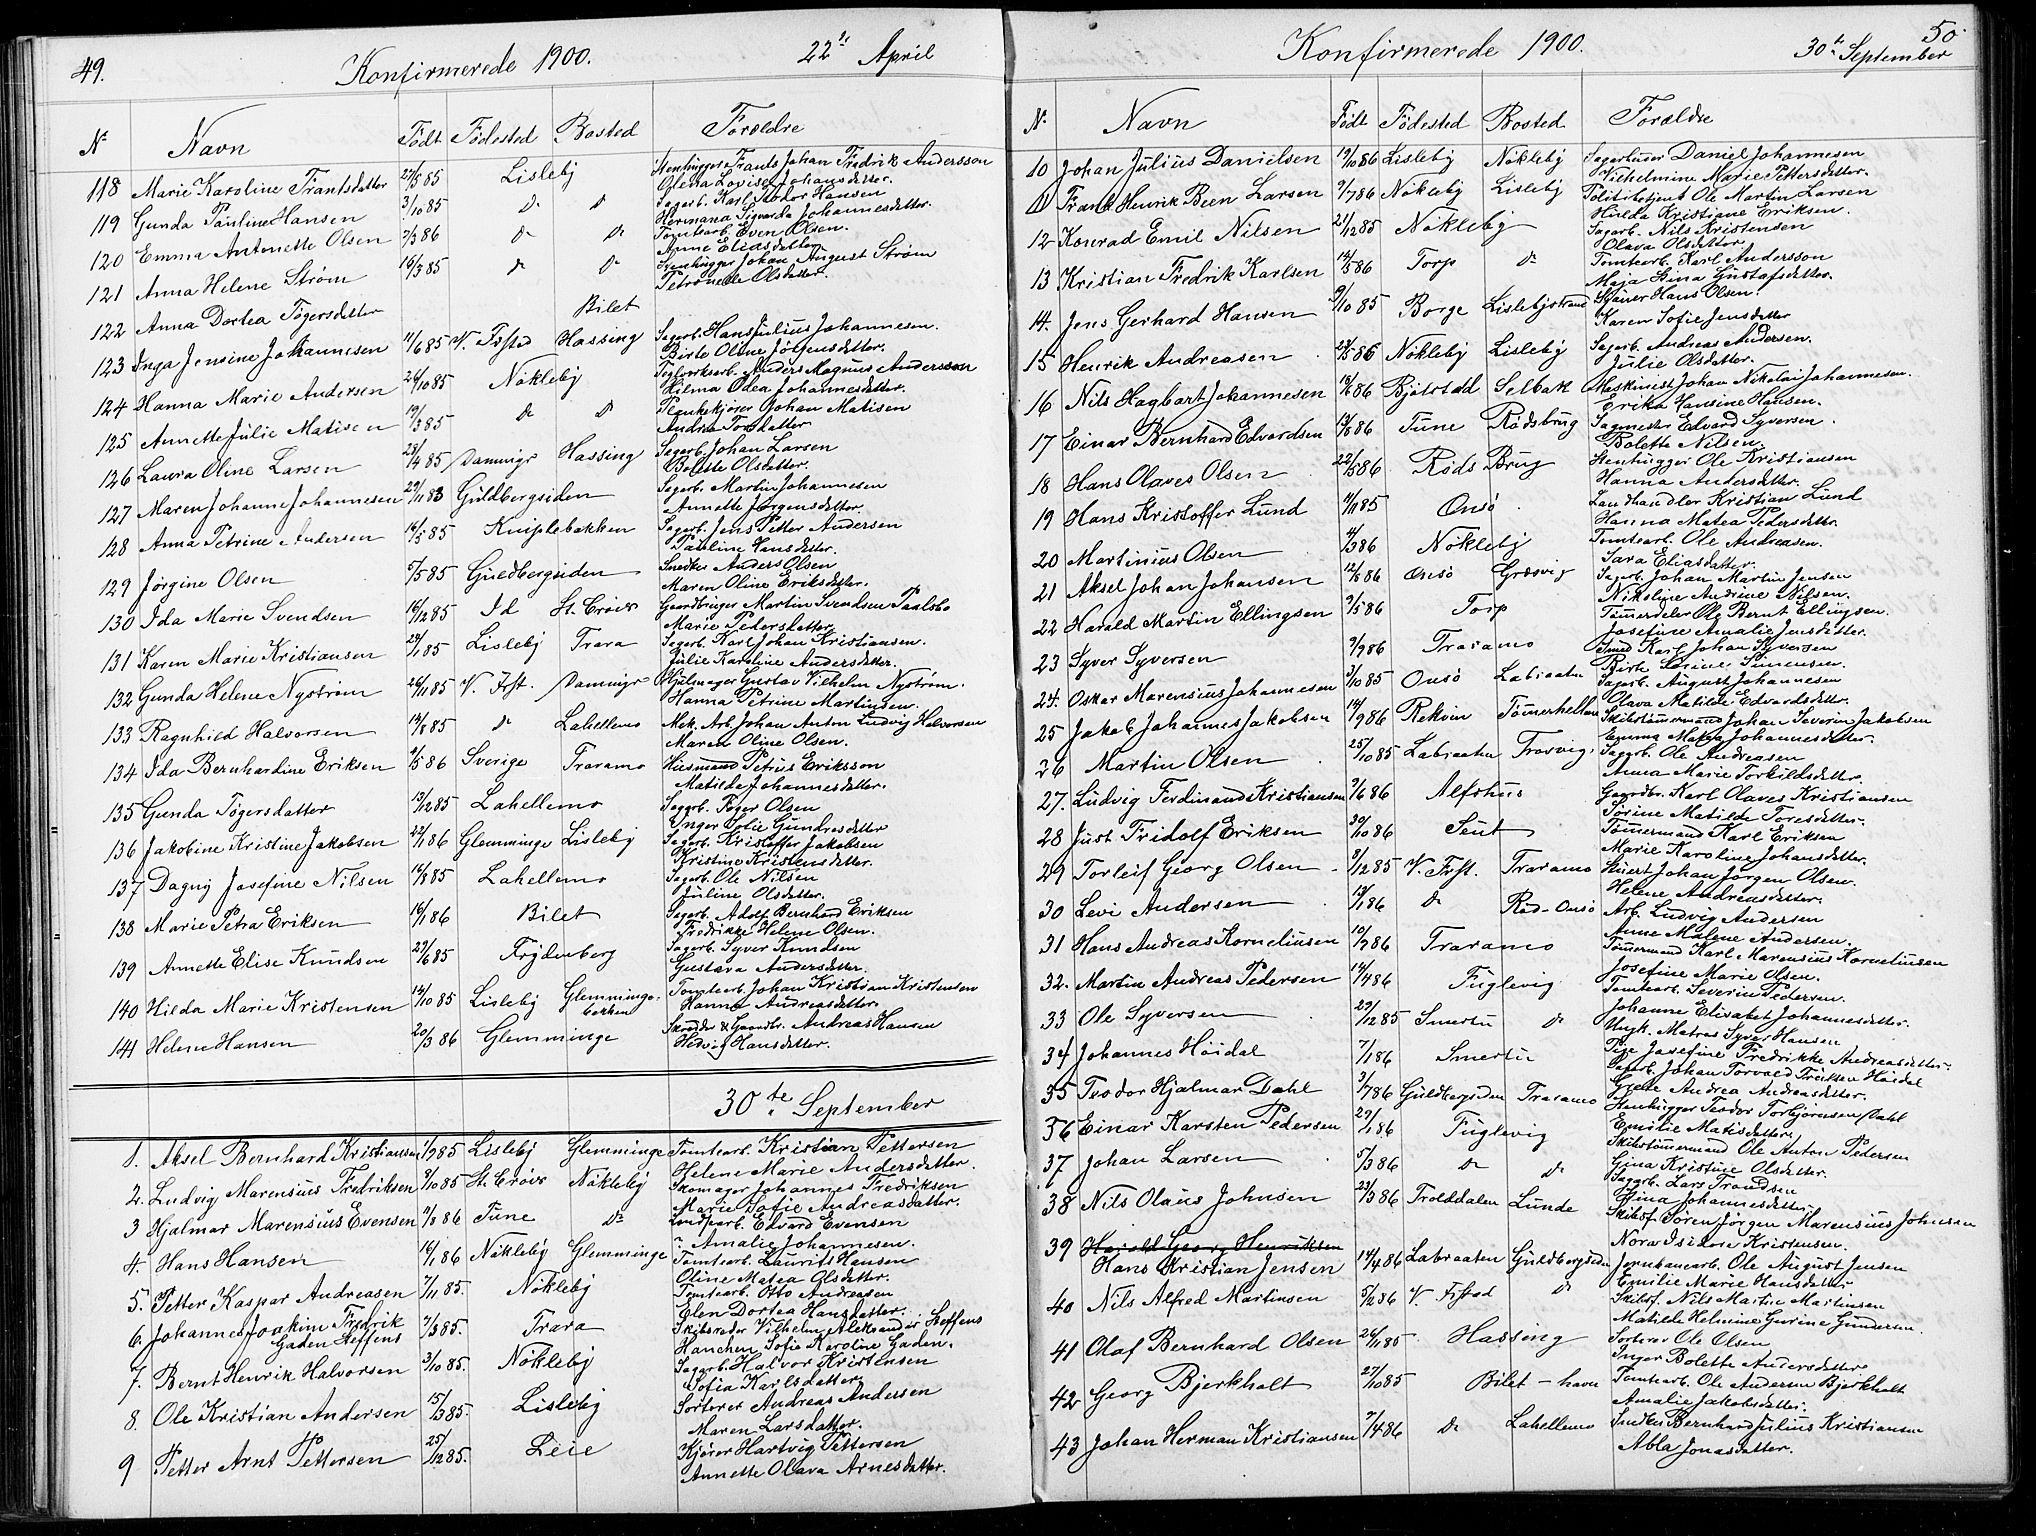 49.
Konfirmerede 1900.
22de April
No Navn Født Fødested Bosted Forældre
118 Marie Karoline Frantsdatter 27/5 85 Lisleby Stenhugger Frants Johan Fredrik Andersson
Olena Lovise Johansdatter.
119 Gunda Pauline Hansen 3/10 85 do do Sagarb. Karl Teodor Hansen
Hermana Sigvarda Johannesdatter.
120 Emma Antonette Olsen 7/3 86 do do Tomtearb. Even Olsen.
Anne Eliasdatter
121 Anna Helene Strøm 16/3 85 do do Stenhugger Johan August Strøm
Petronelle Olsdatter.
122 Anna Dortea Tøgersdatter Bilet
123 Inga Jensine Johannesen 11/6 85 V. Frsted Hassing Sagarb. Hans Julius Johannesen.
Birte Oline Jörgensdatter.
124 Hanna Marie Andersen 26/10 85 Nökleby Teglverksarb. Anders Magnus Andersson
Hilma Olea Johannesdatter.
125 Annette Julie Matisen 19/3 85 do do Plankekjører Johan Matisen
Andrea Torsdatter
126 Laura Oline Larsen 28/4 85 Damvigr Hassing Sagarb. Johan Larsen
Bolette Olsdatter.
127 Maren Johanne Johannesen 29/11 83 Guldbergsiden Sagarb. Martin Johannesen
Annette Jørgensdatter.
128 Anna Petrine Andersen 14/5 85 Kniplebakken Sagarb. Jens Petter Andersen
Pauline Hansdatter.
129 Jørgine Olsen 7/5 85 Guldbergsiden Snedker Anders Olsen
Maren Oline Eriksdatter.
130 Ida Marie Svendsen 16/12 85 Id St. Crövs Gaardbruger Martin Svendsen Paalsbo
Marie Pedersdatter
131 Karen Marie Kristiansen 29/1 85 Lisleby Trara Sagarb. Karl Johan Kristiansen.
Julie Karoline Andersdatter.
132 Gunda Helene Nystrøm 26/11 85 V. Frst. Damvigr Hjulmager Gustav Vilhelm Nystrøm.
Hanna Petrine Martinsen.
133 Ragnhild Halvorsen 14/8 85 do Lahellemo Mek. Arb. Johan Anton Ludvig Halvorsen
Maren Oline Olsen.
134 Ida Bernhardine Eriksen 2/5 86 Sverige Traramo Husmand Petrus Eriksson
Matilde Johannesdatter.
135 Gunda Tögersdatter 13/12 85 Lahellemo Sagarb. Tøger Olsen
Ynger Helie Gundresdatter
136 Jakobine Kristine Jakobsen 22/1 86 Glemminge Lisleby Sagarb. Kristoffer Jakobsen
Kristine Kristensdatter.
137 Dagny Josefine Nilsen 16/8 85 Lahellemo Sagarb. Ole Nilsen
Juline Olsdatter.
138 Marie Petra Eriksen 16/1 86 Bilet Sagarb. Adolf Bernhard Eriksen
Fredrikke Helene Olsen.
139 Annette Elise Knudsen 27/6 85 Frydenberg Sagarb. Syver Knudsen
Gustava Andersdatter.
140 Hilda Marie Kristensen 14/10 85 Lisleby Glemminge- Tomtearb. Johan Kristian Kristensen
Hanna Andreasdatter.
141 Helene Hansen 20/3 86 Glemminge Skrædder & Gaardbr. Andreas Hansen
Hedvig Hansdatter.
30te September
1. Aksel Bernhard Kristiansen 1/9 85 Lisleby Glemminge Tomtearb. Kristian Pettersen
Helene Marie Andersdatter.
2. Ludvig Marensius Fredriksen 8/10 85 St. Crövs Nökleby Skomager Johannes Fredriksen
Marie Sofie Andreasdatter.
3 Hjalmar Marensius Evensen 11/8 86 Tune do Lundsarb. Edvard Evensen
Amalie Johannesen.
4. Hans Hansen 16/1 86 Nökleby Glemminge Tomtearb. Laurits Hansen
Oline Matea Olsdatter.
5. Petter Kaspar Andreasen 7/11 85. Nökleby Tomtearb. Otto Andreasen
Elen Dortea Hansdatter.
6. Johannes Joakim Fredrik Gaden Steffens 7/3 85. Trara Skibsreder Vilhelm Aleksander Steffens
Hanchen Sofie Karoline Gaden.
7. Bernt Henrik Halvorsen 3/10 85. Nökleby Sagarb. Halvor Kristensen
Sofia Karlsdatter
8. Ole Kristian Andersen 15/3 85. Lisleby Sorterer Andreas Andersen
Maren Larsdatter.
9 Petter Arnt Pettersen 25/12 85. Leie Kjører Hartvig Pettersen
Annette Olava Arnesdatter.
50
Konfirmerede 1900.
30te September
No Navn Född Födested Bosted Forældre
10 Johan Julius Danielsen 19/10 86 Lisleby Nökleby Sagarbeider Daniel Johannesen
Vilhelmine Marie Pettersdatter.
11 Frank Henrik Been Larsen 9/7 86 Nökleby Lisleby Politibetjent Ole Martin Larsen
Hulda Kristiane Eriksen.
12 Konrad Emil Nilsen 21/12 85 Nökleby Sagarb. Nils Kristensen
Olava Olsdatter.
13 Kristian Fredrik Karlsen 14/5 86 Torp do Tomtearb. Karl Andersson
Maja Stina Gustafsdatter.
14. Jens Gerhard Hansen 9/10 85 Borge Lislebystrand Skriver Hans Olsen.
Karen Sofie Jensdatter
15 Henrik Andreasen 24/5 86 Nökleby Lisleby Sagarb. Andreas Andersen.
Julie Olsdatter.
16 Nils Hagbart Johannesen 18/6 86 Bjölstad Selbak Maskinist Johan Nikolai Johannesen.
Erika Hansine Hansen.
17 Einar Bernhard Edvardsen 13/8 86 Tune Rödsbrug Sagmester Edvard Syversen.
Bolette Nilsen.
18 Hans Olaves Olsen 22/5 86 Röds Brug Stenhugger Ole Kristiansen
Hanna Andersdatter.
19 Hans Kristoffer Lund 11/11 85 Onsö Landhandler Kristian Lund
Hanna Matea Pedersdatter
20 Martinius Olsen 4/3 86 Nökleby Tomtearb. Ole Andreasen.
Sara Eliasdatter.
21 Aksel Johan Johansen 12/8 86 Onsö Græsvig Sagarb. Johan Martin Jensen
Nikoline Andrine Nilsen.
22 Harald Martin Ellingsen 9/5 86 Torp Tømerdeler Ole Bernt Ellingsen.
Josefine Amalie Jensdatter.
23 Syver Syversen 9/9 86 Traramo Smed Karl Johan Syversen
Birte Simensen.
24. Oskar Marensius Johannesen 3/10 85 Onsö Labraaten Sagarb. August Johannesen
Olava Matilde Edvardsdatter.
25 Jakob Johannes Jakobsen 14/9 86 Rekvin Tømerhellen Skibstömmermand Johan Severin Jakobsen
Emma Matea Johannesdatter.
26 Martin Olsen 25/10 85 Labraaten Trosvig. Sagarb. Ole Andreasen
Anna Marie Torkildsdatter.
27. Ludvig Ferdinand Kristiansen 9/6 86 Alfshus Gaardbr. Karl Olaves Kristiansen
Sørine Matilde Toresdatter.
28 Just Fridolf Eriksen 30/10 86 Seut Tömmermand Karl Eriksen
Marie Karoline Johansdatter.
29 Torleif Georg Olsen 9/12 85 V. Frst. Traramo Stuert Johan Jørgen Olsen.
Helene Andreasdatter.
30 Levi Andersen 19/1 86 do Röd-Onsö Arb. Ludvig Andersen
Anne Malene Andersen.
31 Hans Andreas Korneliusen 10/7 86 Traramo Tömmermand Karl Marensius Korneliusen
Josefine Marie Olsen.
32. Martin Andreas Pedersen 14/4 86 Fuglevig Tomtearb. Severin Pedersen.
Johanne Elisabet Johannesdatter.
33 Ole Syversen 29/12 85 Smertu do Ungk. Matros Syver Hansen
Pige Josefine Fredrikke Andreasdatter.
34 Johannes Höidal 7/1 86 Smertu Sagarb. Johan Torvald Eriksen Høidal
Grete Andrea Andreasdatter.
35 Teodor Hjalmar Dahl 3/7 86 Guldbergsiden Traramo Stenhugger Teodor Torbjørnsen Dahl
Emilie Matisdatter.
36 Einar Karsten Pedersen 29/1 86 Fuglevig Skibstömmermand Ole Anton Pedersen
Gina Kristine Olsdatter.
37 Johan Larsen 5/3 86 do do Sagarb. Lars Trondsen
Stina Johannesdatter.
38 Nils Olaus Johnsen 23/3 86 Trolddalen Lunde Skibsf. Søren Jørgen Marensius Johnsen
Nora Isidore Kristensen.
39 Harald Georg Henriksen
Hans Kristian Jensen 14/4 86 Labraaten Guldbergsiden Jernbanearb. Ole August Jensen
Emilie Marie Hansdatter
40 Nils Alfred Martinsen 5/2 86 V. Frstad do Skibsf. Nils Martin Martinsen
Matilde Helmine Gurine Gundersen.
41 Olaf Bernhard Olsen 26/11 85 Hassing Sorterer Ole Olsen
Inger Bolette Andersdatter
42 Georg Bjerkholt 27/10 85 Bilet - havn Tomtearb. Ole Andersen Bjerkholt
Amalie Jakobsdatter.
43 Johan Herman Kristiansen 7/4 86 do Lahellemo Snedker Bernhard Julius Kristiansen
Abla Jonasdatter.